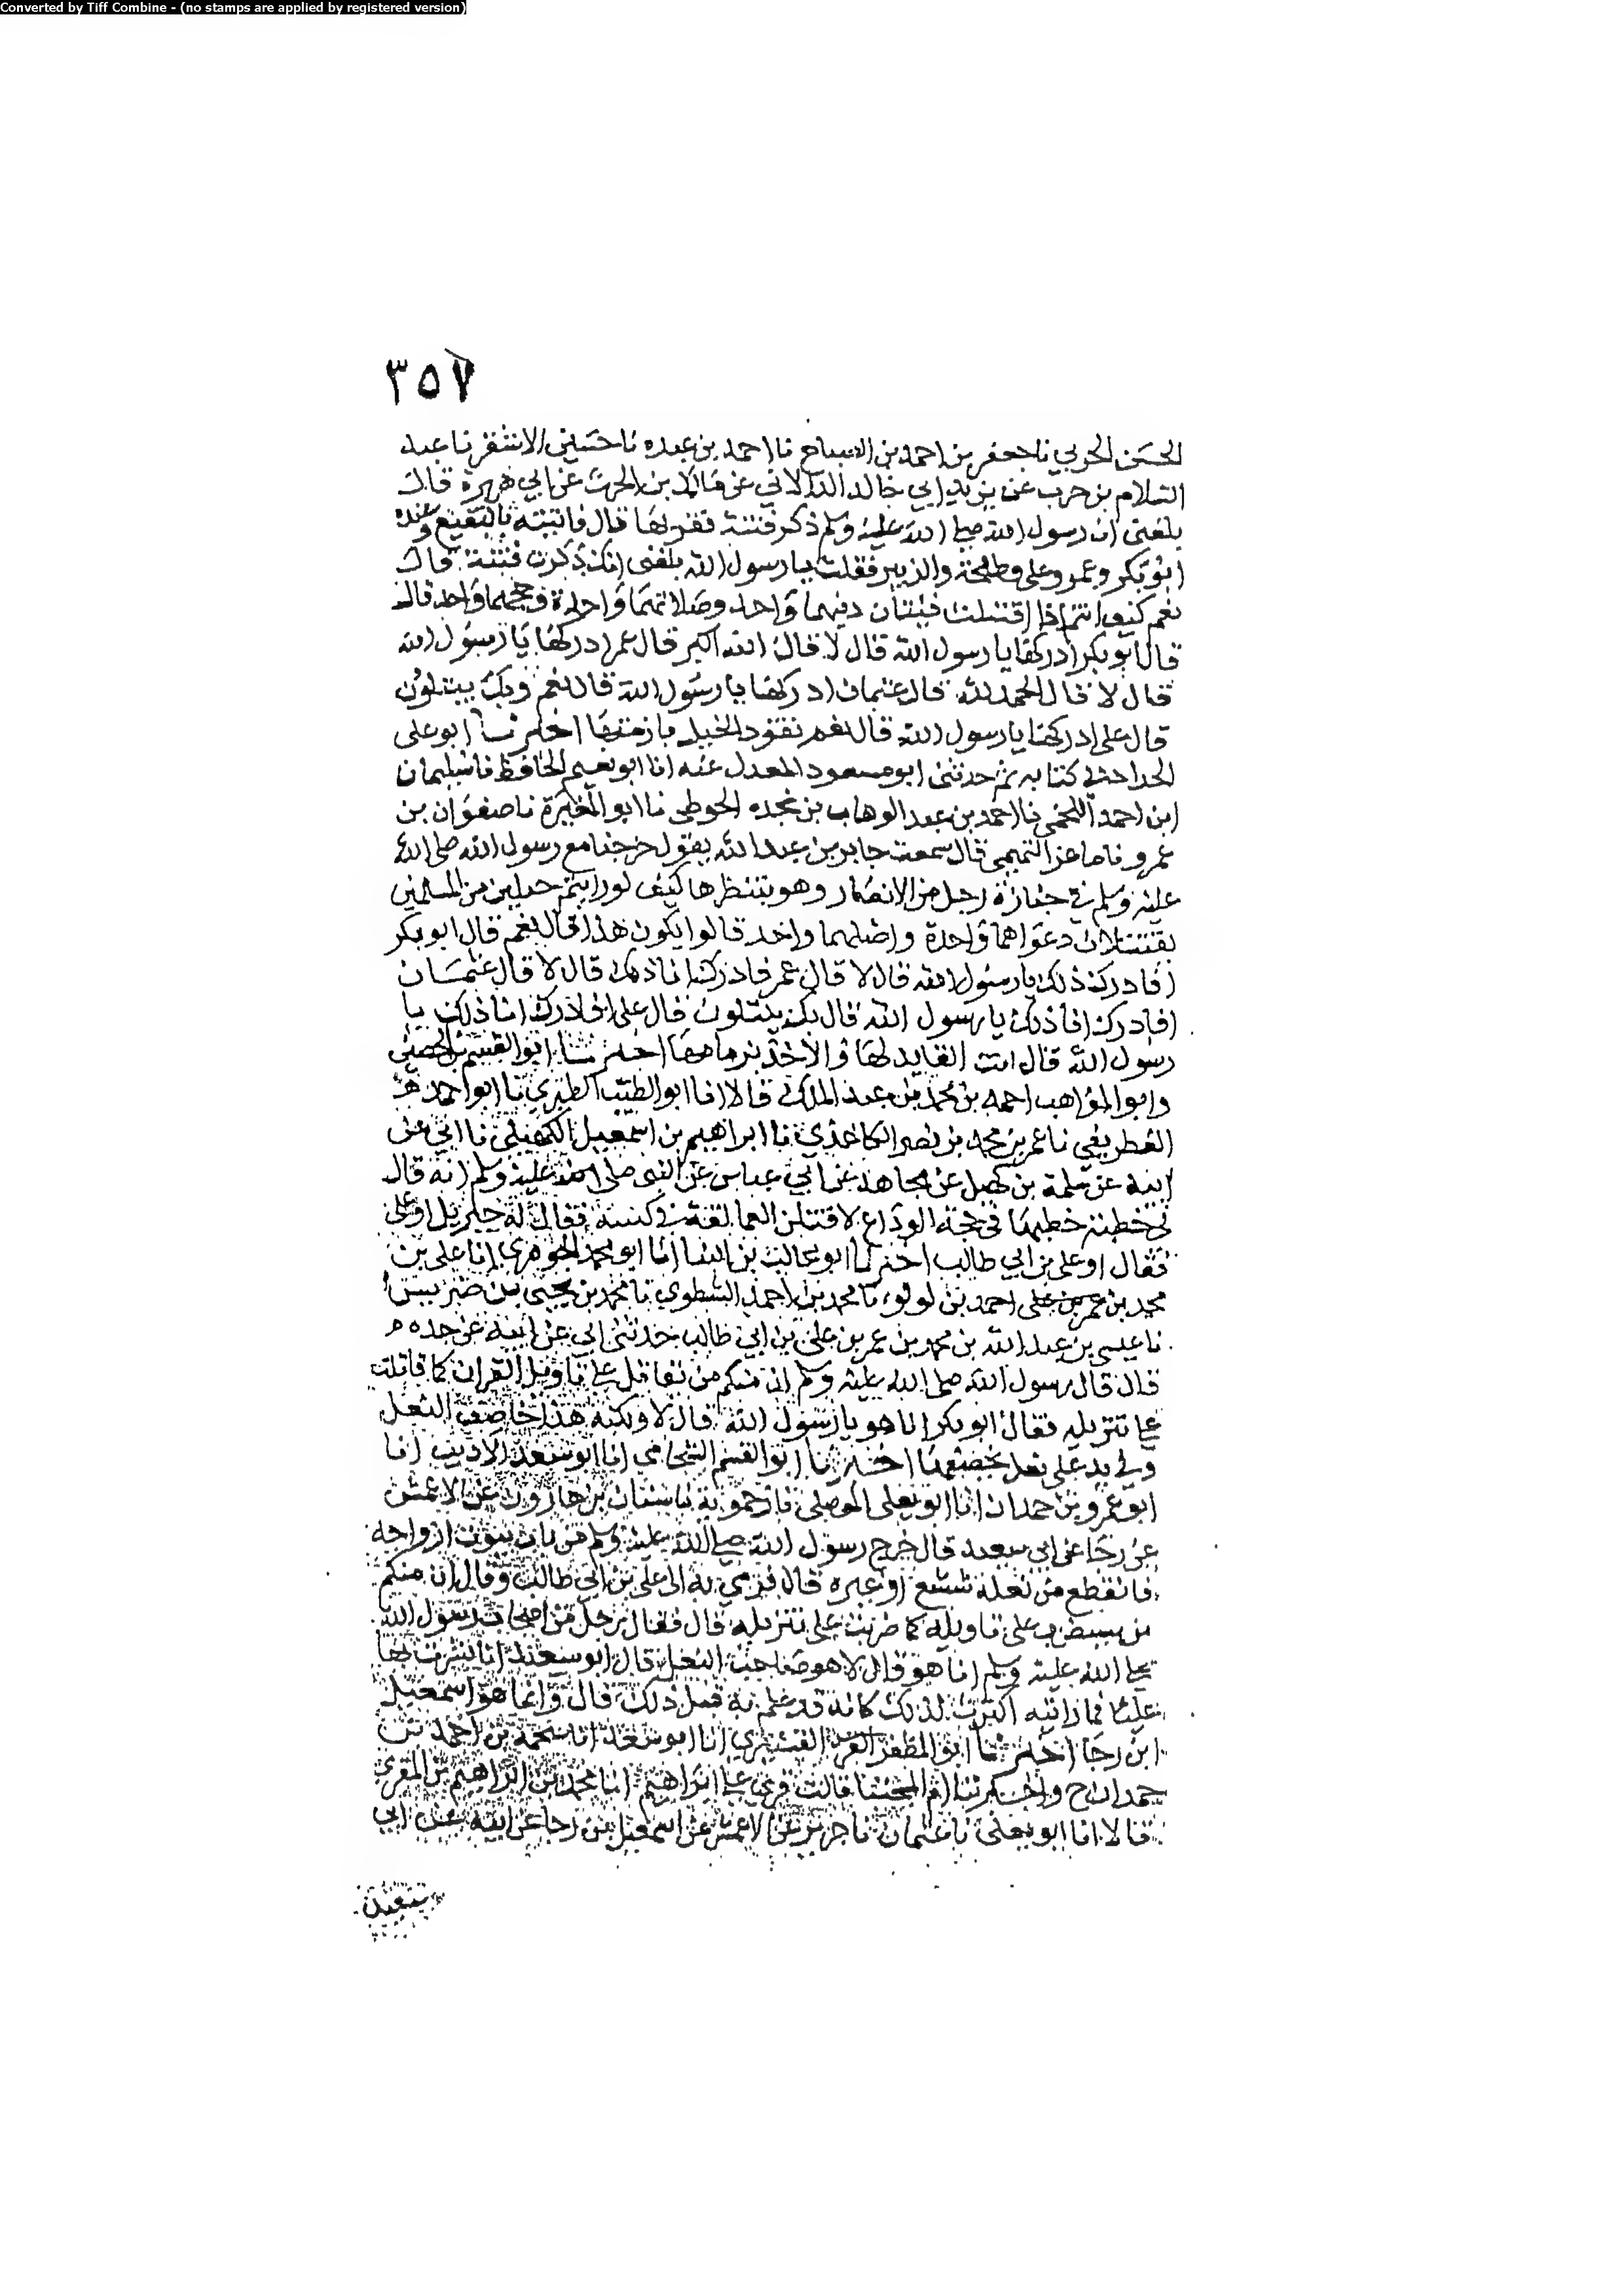 Converted by Tiff Combine - (no stamps are applied by registered version)
٣٥٧
الحسن الحربي نا جعفر بن احمد بن الصباح نا احمد بن عبده نا حسين الاشقر نا عبد
السلام بن حرب عن يزيد ابي خالد الدالاني عن بن الحرث عن ابي هريرة قال
بلغني ان رسول الله صلى الله عليه وسلم ذكر فتنة فقربها قال فاتيته بالبقيع وعنده
ابو بكر وعمر وعلى وطلحة والزبير فقلت يا رسول الله بلغني انك ذكرت فتنة قال
نعم كيف انتم اذا اقتتلت فئتان دينهما واحد وصلاتهما واحدة وحجهما واحد قال
قال ابو بكر ادركها يا رسول الله قال لا قال الله اكبر قال عمر ادركها يا رسول الله
قال لا قال الحمد لله قال عثمان ادركها يا رسول الله قال نعم وبك يبتلون
قال على ادركها يا رسول الله قال نعم تقود الخيل بازمتها اخبرنا ابو على
الحداد في كتابه ثم حدثني ابو مسعود المعدل عنه انا ابو نعيم الحافظ نا سليمان
ابن احمد اللخمى نا احمد بن عبد الوهاب بن نجده الحوطى نا ابو المغيرة نا صفوان بن
عمرو نا ماعز التميمى قال سمعت جابر بن عبد الله يقول خرجنا مع رسول الله صلى الله
عليه وسلم في جنازة رجل من الانصار وهو ينتظرها كيف لو رايتم خيلين من المسلمين
يقتتلان دعواهما واحدة واصلهما واحد قالوا يكون هذا قال نعم قال ابو بكر
افادرك ذلك يا رسول الله قال لا قال عمر فادركه انا ذلك قال لا قال عثمان
افادرك انا ذلك يا رسول الله قال بك يبتلون قال على افادرك انا ذلك يا
رسول الله قال انت القايد لها والاخذ بزمامها اخبرنا ابو القسم بن الحصين
وابو المواهب احمد بن محمد بن عبد الملك قالا انا ابو الطيب الطبري نا ابو احمد
الغطريفي نا عمر بن محمد بن نصر الكاغذي نا ابراهيم بن اسمعيل الكهيلى نا ابي عن
ابيه عن سلمة بن كهيل عن مجاهد عن ابي عباس عن النبي صلى الله عليه وسلم انه قال
في خطبته خطبها في حجة الوداع لاقتلن العمالقة في كتيبة فقال له جبريل او على
فقال او على بن ابي طالب اخبرنا ابو غالب بن البنا انا ابو محمد الجوهري انا على بن
محمد بن احمد بن لولو نا محمد بن احمد الشطوي نا محمد بن يحيى بن ضريس
نا عيسى بن عبد الله بن محمد بن عمر بن على بن ابي طالب حدثني ابي عن ابيه عن جده
قال قال رسول الله صلى الله عليه وسلم ان منكم من يقاتل على تاويل القران كما قاتلت
على تنزيله فقال ابو بكر انا هو يا رسول الله قال لا ولكنه هذا خاصف النعل
وفي يد على نعل يخصفها اخبرنا ابو القسم الشحامي انا ابو سعد الاديب انا
ابو عمرو بن حمدان انا ابو يعلى الموصلى نا زحمويه نا سنان بن هارون عن الاعمش
عن رجا عن ابي سعيد قال خرج رسول الله صلى الله عليه وسلم من باب بيوت ازواجه
فانقطع من نعله شسع او غيره قال فرمى به الى على بن ابي طالب وقال ان منكم
من يضرب على تاويله كما ضربت على تنزيله قال فقال رجل من اصحاب رسول الله
صلى الله عليه وسلم انا هو قال لا هو صاحب النعل قال ابو سعيد انا بشرت بها
عليا فما رايته اكترث لذلك كانه قد علم به قبل ذلك قال وانما هو اسمعيل
ابن رجا اخبرنا ابو المظفر القشيري انا ابو سعد انا محمد بن احمد بن
حمدان ح واخبرتنا ام المجتبا قالت قري على ابراهيم انا محمد بن ابراهيم بن المقري
قالا انا ابو يعلى نا عثمان نا جرير عن الاعمش عن اسمعيل بن رجا عن ابيه عن ابي
سعيد